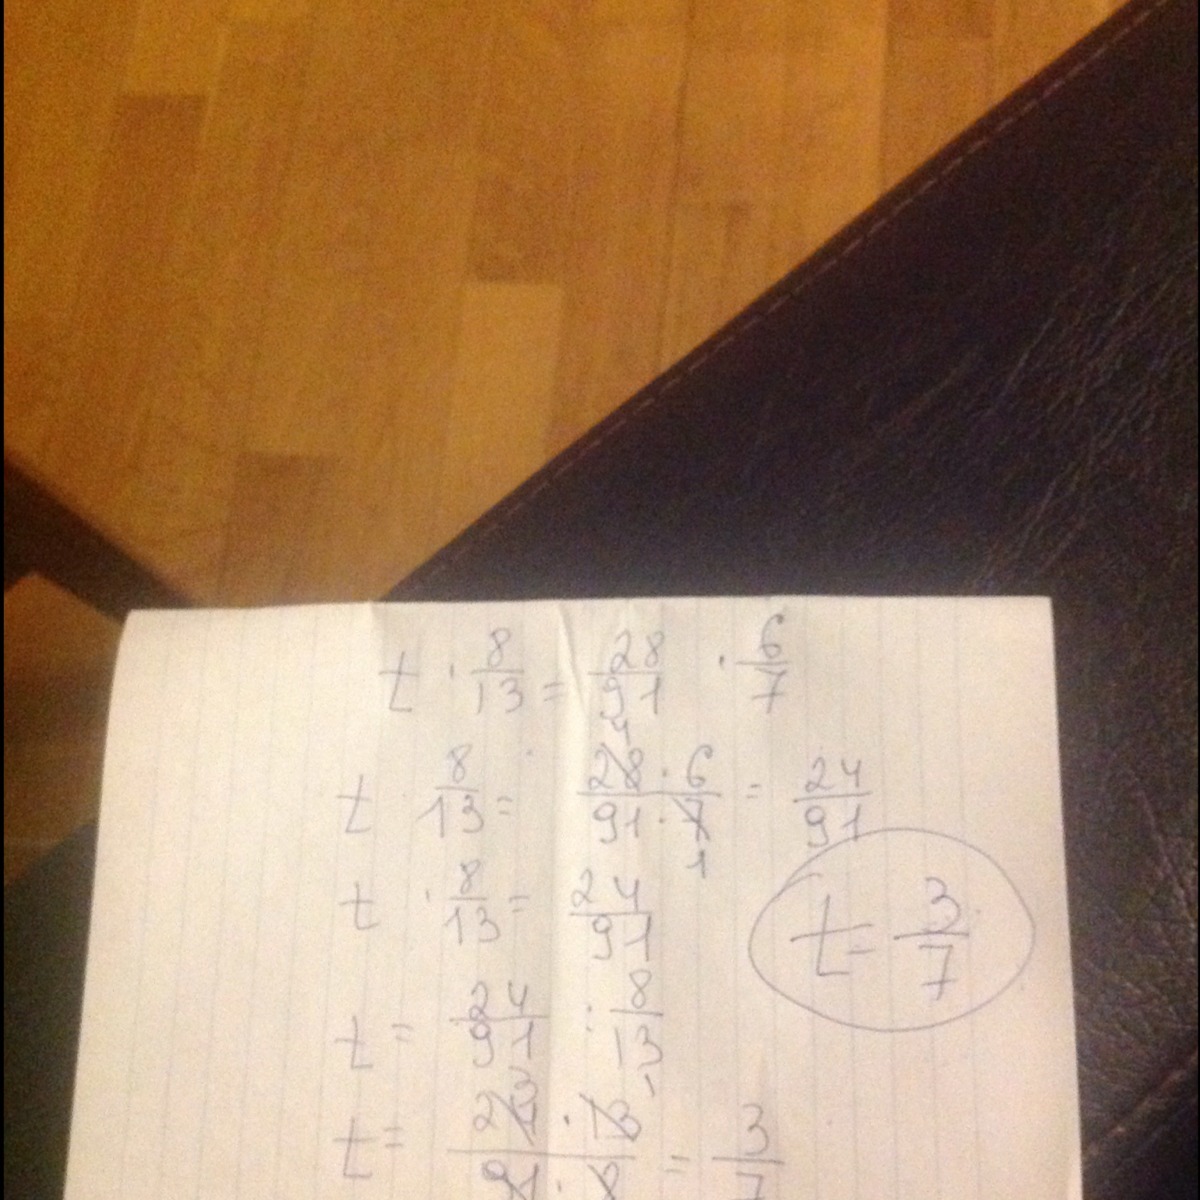 t · 8/13 = 28/91 · 6/7
t · 8/13 = 28 · 6 / 91 · 7 = 24/91
t · 8/13 = 24/91
t = 3/7
t = 24/91 : 8/13
t = 24 · 13 / 91 · 8 = 3/7